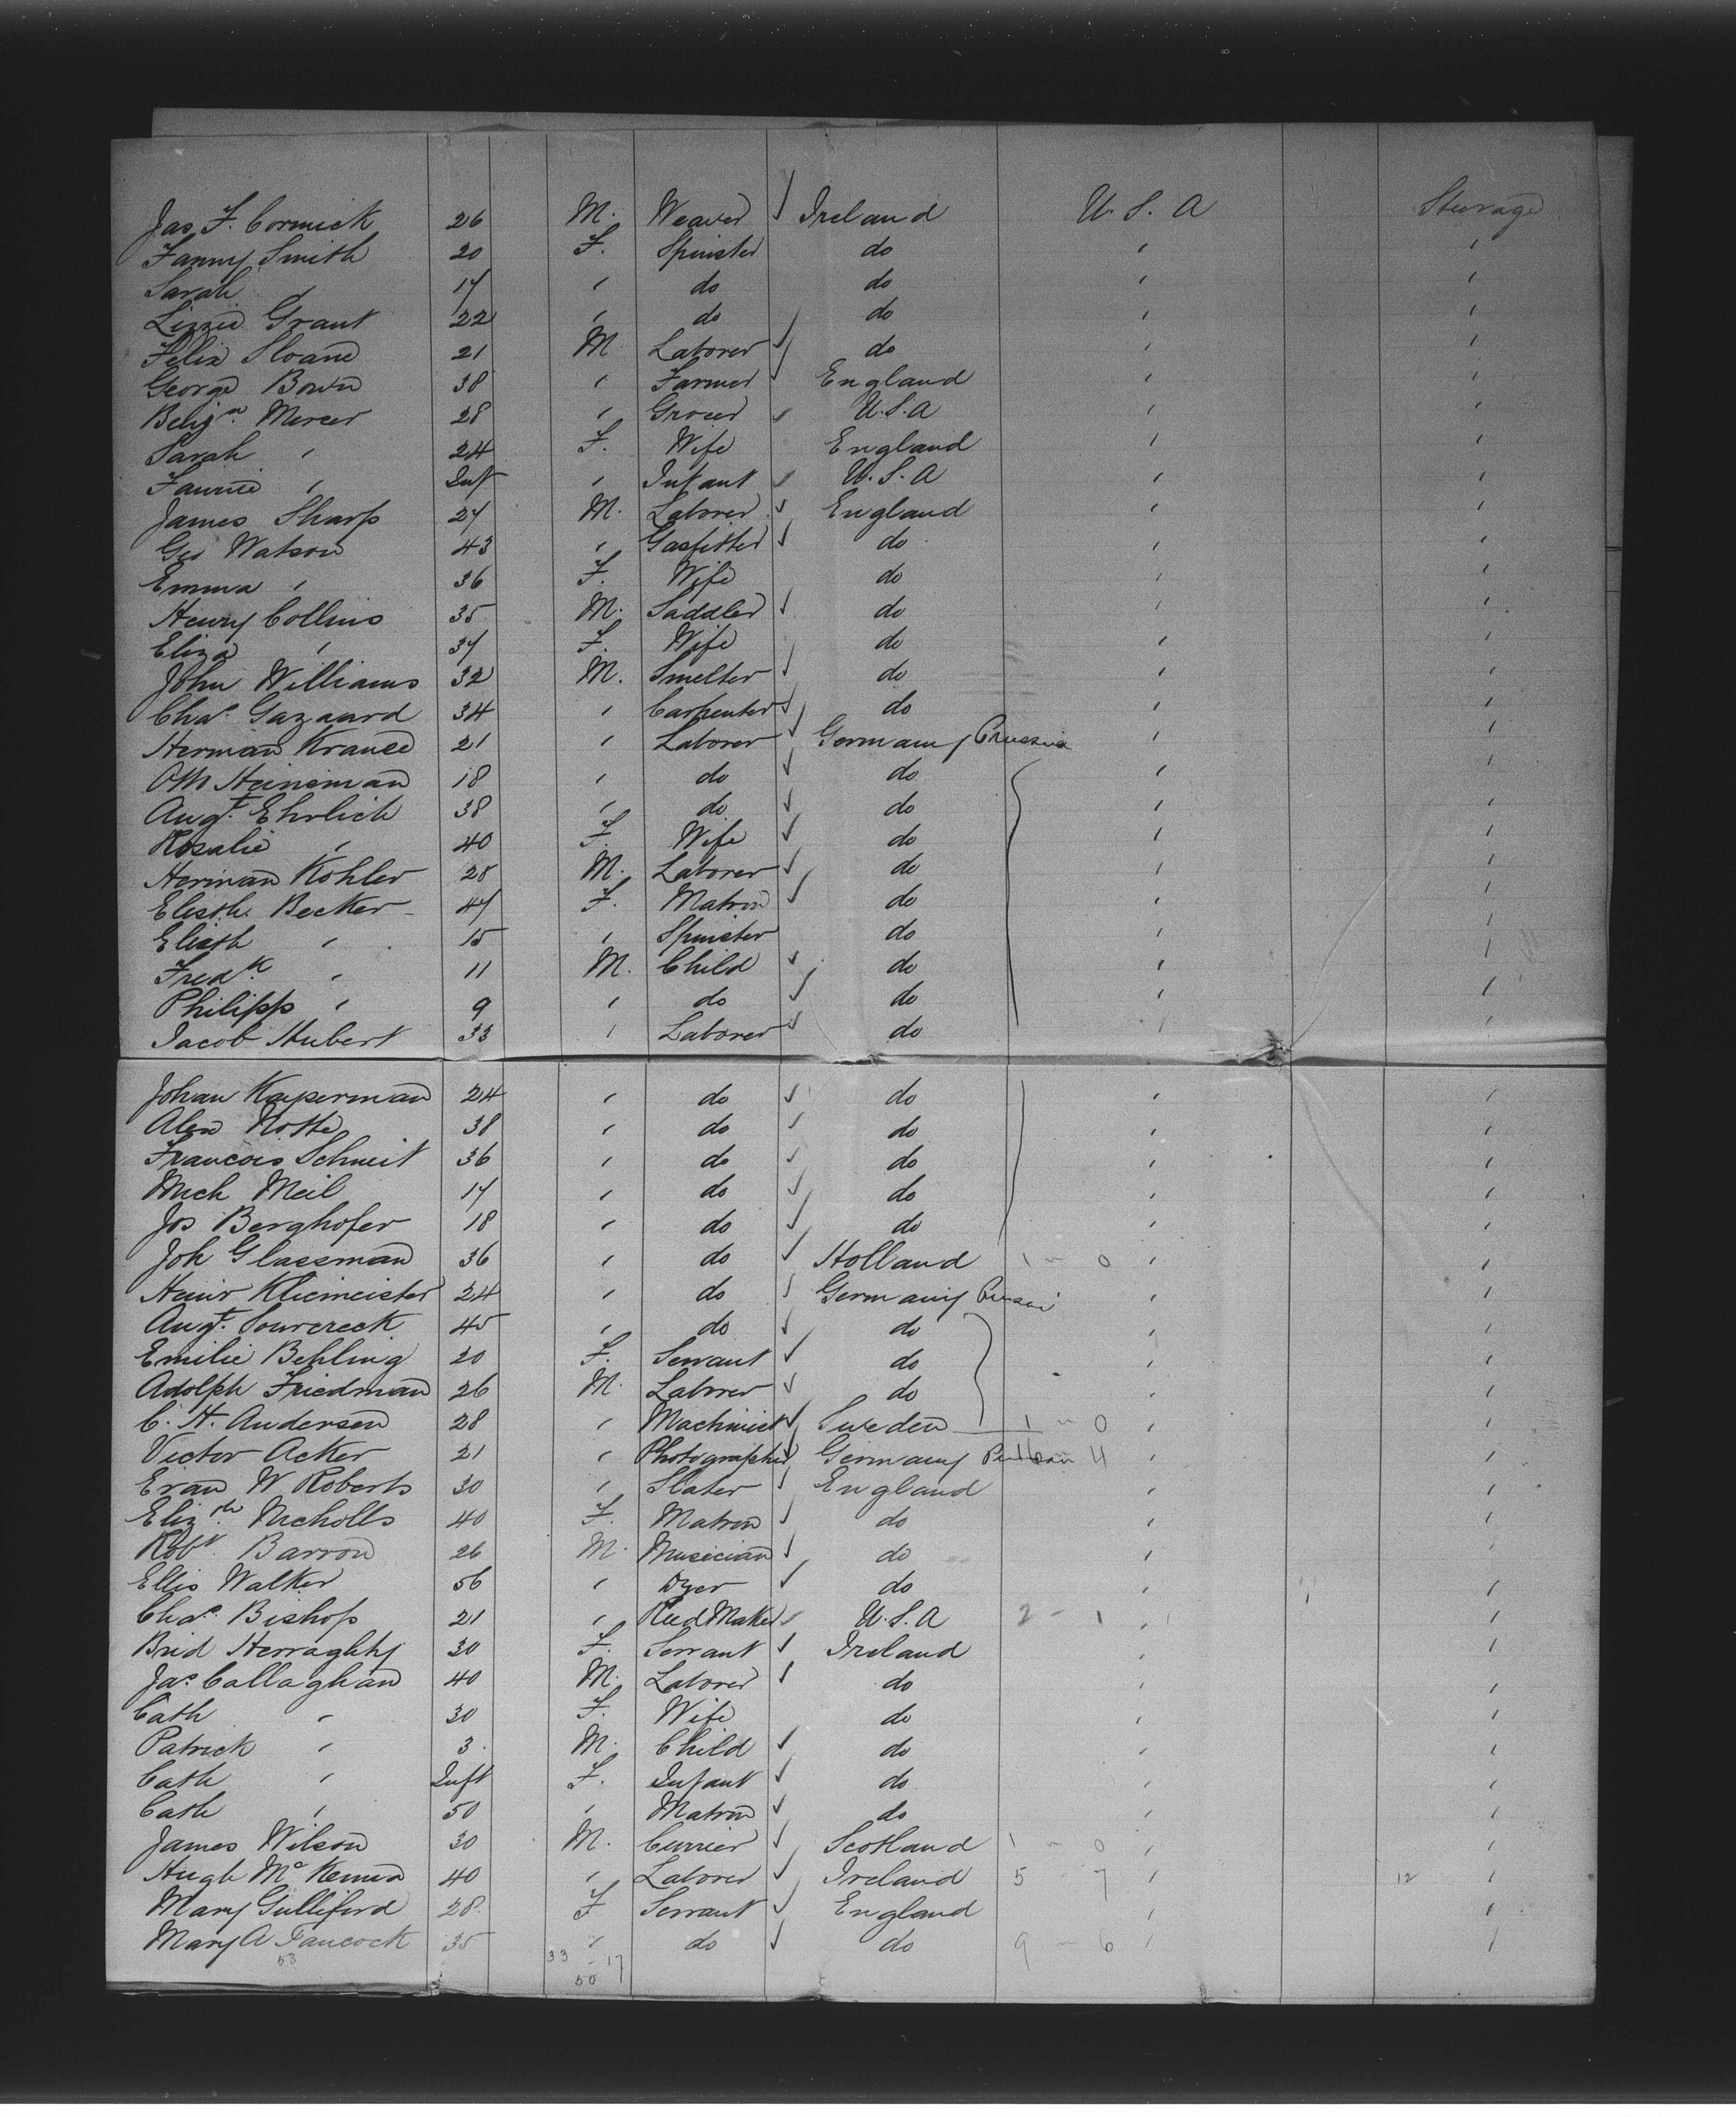 Jas. F. Cormick 26 M. Weaver Ireland U. S. A Sterage
Fanny Smith 20 F. Spinster do " "
Sarah " 17 " do do " "
Lizzie Grant 22 " do do " "
Felix Sloane 21 M. Laborer do " "
George Bown 38 " Farmer England " "
Benjn. Mercer 28 " Grocer U.S.A " "
Sarah " 24 F. Wife England " "
Fannie " Inft " Infant U.S.A " "
James Sharp 27 M. Laborer England " "
Geo Watson 43 " Gasfitter do " "
Emma " 36 F. Wife do " "
Henry Collins 35 M. Saddler do " "
Eliza " 37 F. Wife do " "
John Williams 32 M. Smelter do " "
Chas. Gazaard 34 " Carpenter do " "
Herman Krause 21 " Laborer Germany Prussia " "
Otto Heineman 18 " do do " "
Augt. Ehrlich 38 " do do " "
Rosalie " 40 F. Wife do " "
Herman Kohler 28 M. Laborer do " "
Elisth. Becker 47 F. Matron do " "
Elisth " 15 " Spinster do " "
Fredk " 11 M. Child do " "
Philipp " 9 " do do " "
Jacob Hubert 33 " Laborer do " "
Johan Kaperman 24 " do do " "
Alex Notte 38 " do do " "
Francois Schmit 36 " do do " "
Mich Meil 17 " do do " "
Jos Berghofer 18 " do do " "
Joh Glassman 36 " do Holland 1 - 0 " "
Heinr Kliemeister 24 " do Germany " "
Augt. Sourcreek 45 " do do " "
Emilie Behling 20 F. Servant do " "
Adolph Friedman 26 M. Laborer do " "
C. H. Andersen 28 " Machinist Sweden 1 - 0 " "
Victor Acker 21 " Photographer Germany " "
Evan W Roberts 30 " Slater England " "
Elizth. Nicholls 40 F. Matron do " "
Robt. Barron 26 M. Musician do " "
Ellis Walker 56 " Dyer do " "
Chas. Bishop 21 " Reed Maker U.S.A 2 - 1 " "
Brid Herraghty 30 F. Servant Ireland " "
Jas. Callaghan 40 M. Laborer do " "
Cath " 30 F. Wife do " "
Patrick " 3. M. Child do " "
Cath " Inft F. Infant do " "
Cath " 50 " Matron do " "
James Wilson 30 M. Currier Scotland 1 - 0 " "
Hugh Mc Kenna 40 " Laborer Ireland 5 7 " 12 "
Mary Gulliford 28. F Servant England " "
Mary A Tancock 35 " do do 9 - 6 " "
53 33 - 17
50